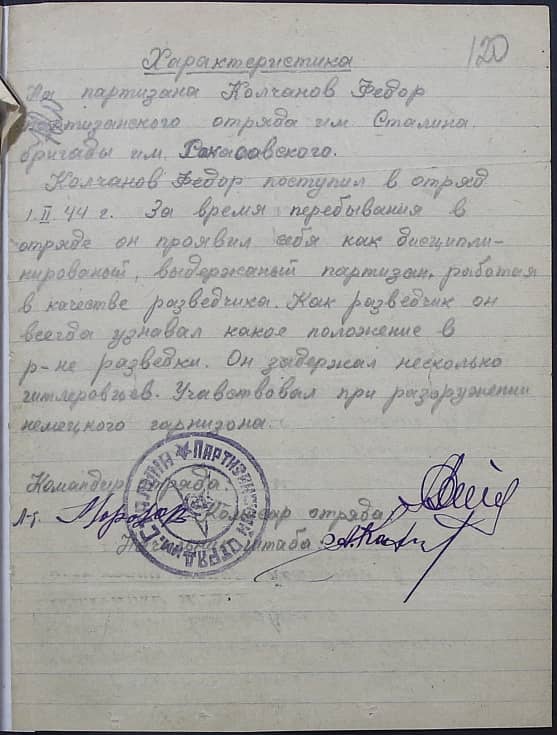 120
Характеристика
На партизана Колчанов Федор
партизанского отряда им. Сталина
бригады им. Рокасавского.
Колчанов Федор поступил в отряд
1.II.44 г. За время перебывания в
отряде он проявил себя как дисципли-
нированый, выдержаный партизан, работая
в качестве разведчика. Как разведчик он
всегда узнавал какое положение в
р-не разведки. Он задержал несколько
гитлеровцев. Учавствовал при разоружении
немецкого гарнизона.
Командир отряда
Л-т. Комиссар отряда
Начальник штаба
ПАРТИЗАНСКИЙ ОТРЯД ИМ.